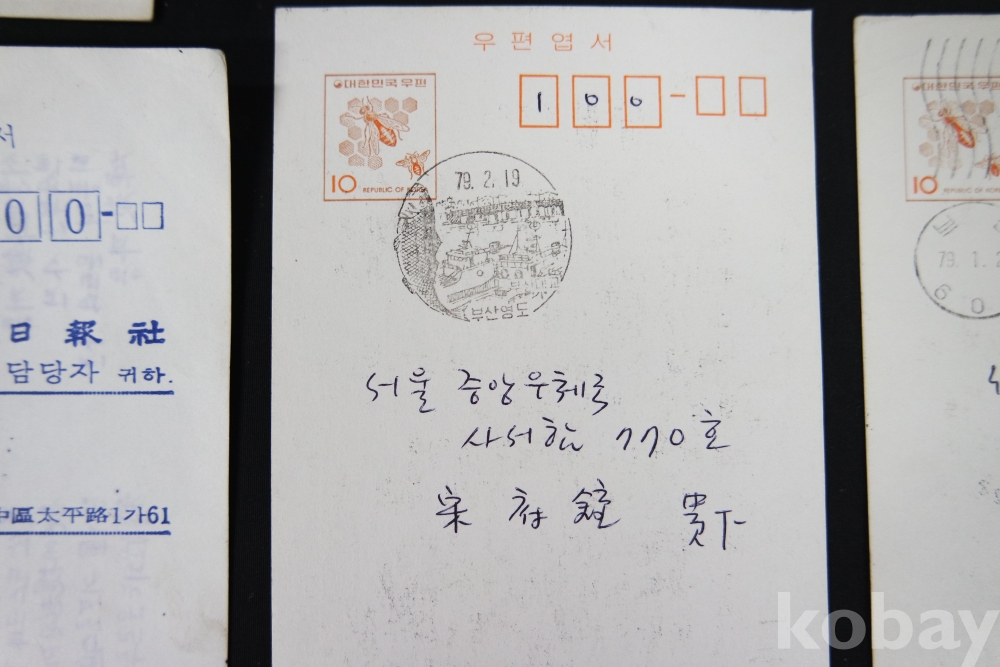 서
00-
日報社
담당자 귀하.
中區太平路1가61
우편엽서
대한민국우편
10 REPUBLIC OF KOREA
100-
79. 2. 19
부산영도
서울 중앙우체국
사서함 770호
宋 鐘 貴下
10 REPUBLIC OF KOREA
79.1.2
60
kobay